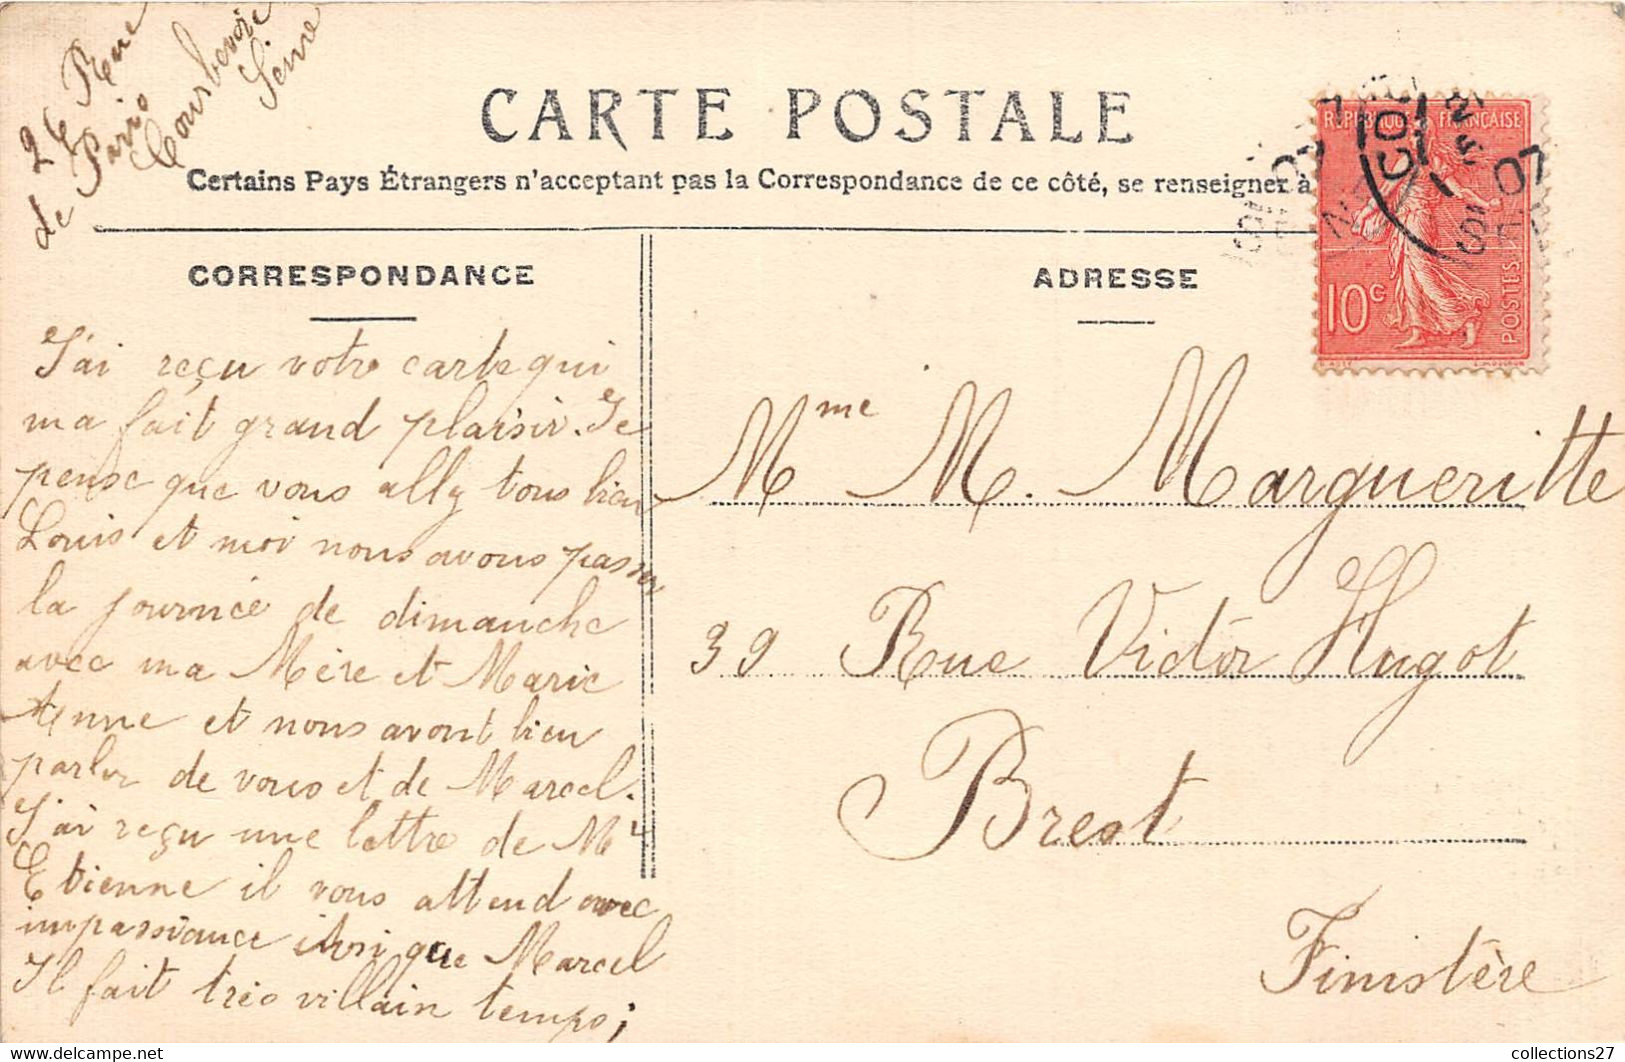 26 Rue
de Paris
Courbevoie
Seine
CARTE POSTALE
Certains Pays Étrangers n'acceptant pas la Correspondance de ce côté, se renseigner à
REPUBLIQUE FRANÇAISE
10 c
POSTES
07
CORRESPONDANCE
J'ai reçu votre carte qui
ma fait grand plaisir. Je
pense que vous ally tous bien
Louis et moi nous avons passer
la journée de dimanche
avec ma Mère et Marie
Anne et nous avont bien
parler de vous et de Marcel.
J'ai reçu une lettre de Mr
Etienne il vous attend avec
impassiance insi que Marcel
Il fait très villain temps;
ADRESSE
Mme M. Margueritte
39 Rue Victor Hugot
Brest
Finistère
collections27